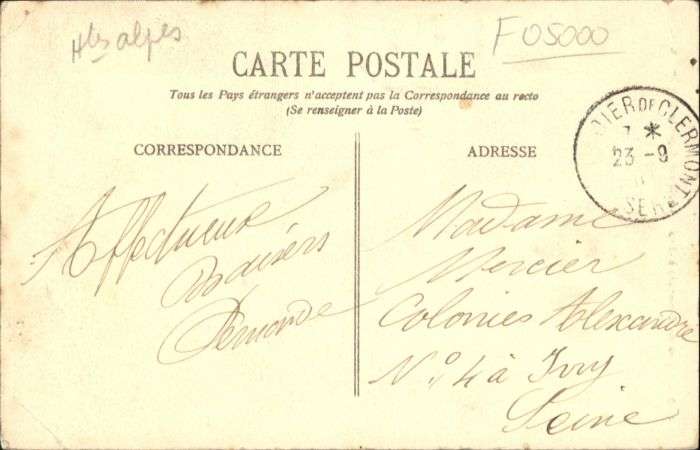 Htes alpes
F05000
CARTE POSTALE
Tous les Pays étrangers n'acceptent pas la Correspondance au recto
(Se renseigner à la Poste)
CORRESPONDANCE
ADRESSE
QUARTIER DE CLERMONT
7 *
23 -9
ISERE
Affectueux
Baisers
Demande
Madame
Mercier
Colonies Alexandre
No 4 à Ivry
Seine